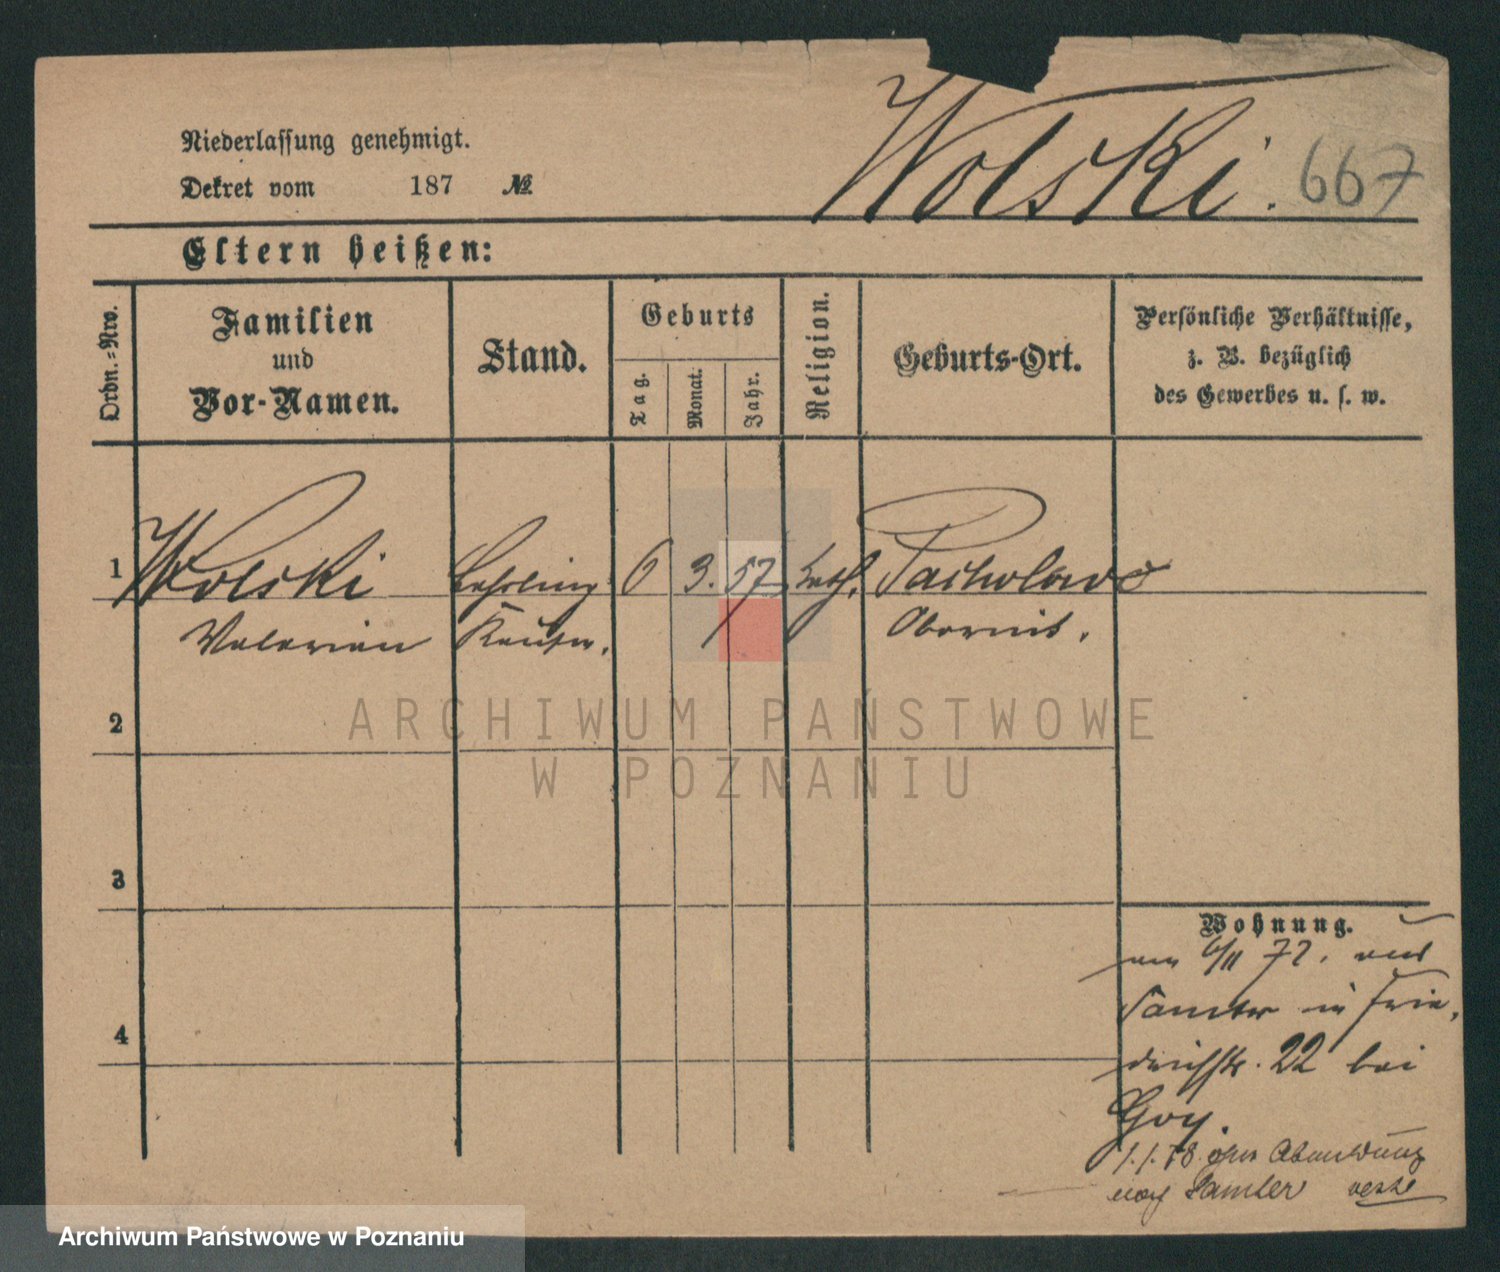 Niederlassung genehmigt.
Dekret vom 187 №
Wolski. 667
Eltern heißen:
Ordn.-Nro.
Familien
und
Vor-Namen.
Stand.
Geburts
Tag.
Monat.
Jahr.
Religion.
Geburts-Ort.
Persönliche Verhältnisse,
z. B. bezüglich
des Gewerbes u. s. w.
1 Wolski Lehrling 6 3. 57 kath. Pacholewo
Valerian Obornik.
2
3
4
Wohnung.
am 6/11 77. aus
Samter in Frie,
drichstr. 22 bei
Goy.
1.1.78 ohne Abmeldung
nach Samter
ARCHIWUM PAŃSTWOWE
W POZNANIU
Archiwum Państwowe w Poznaniu